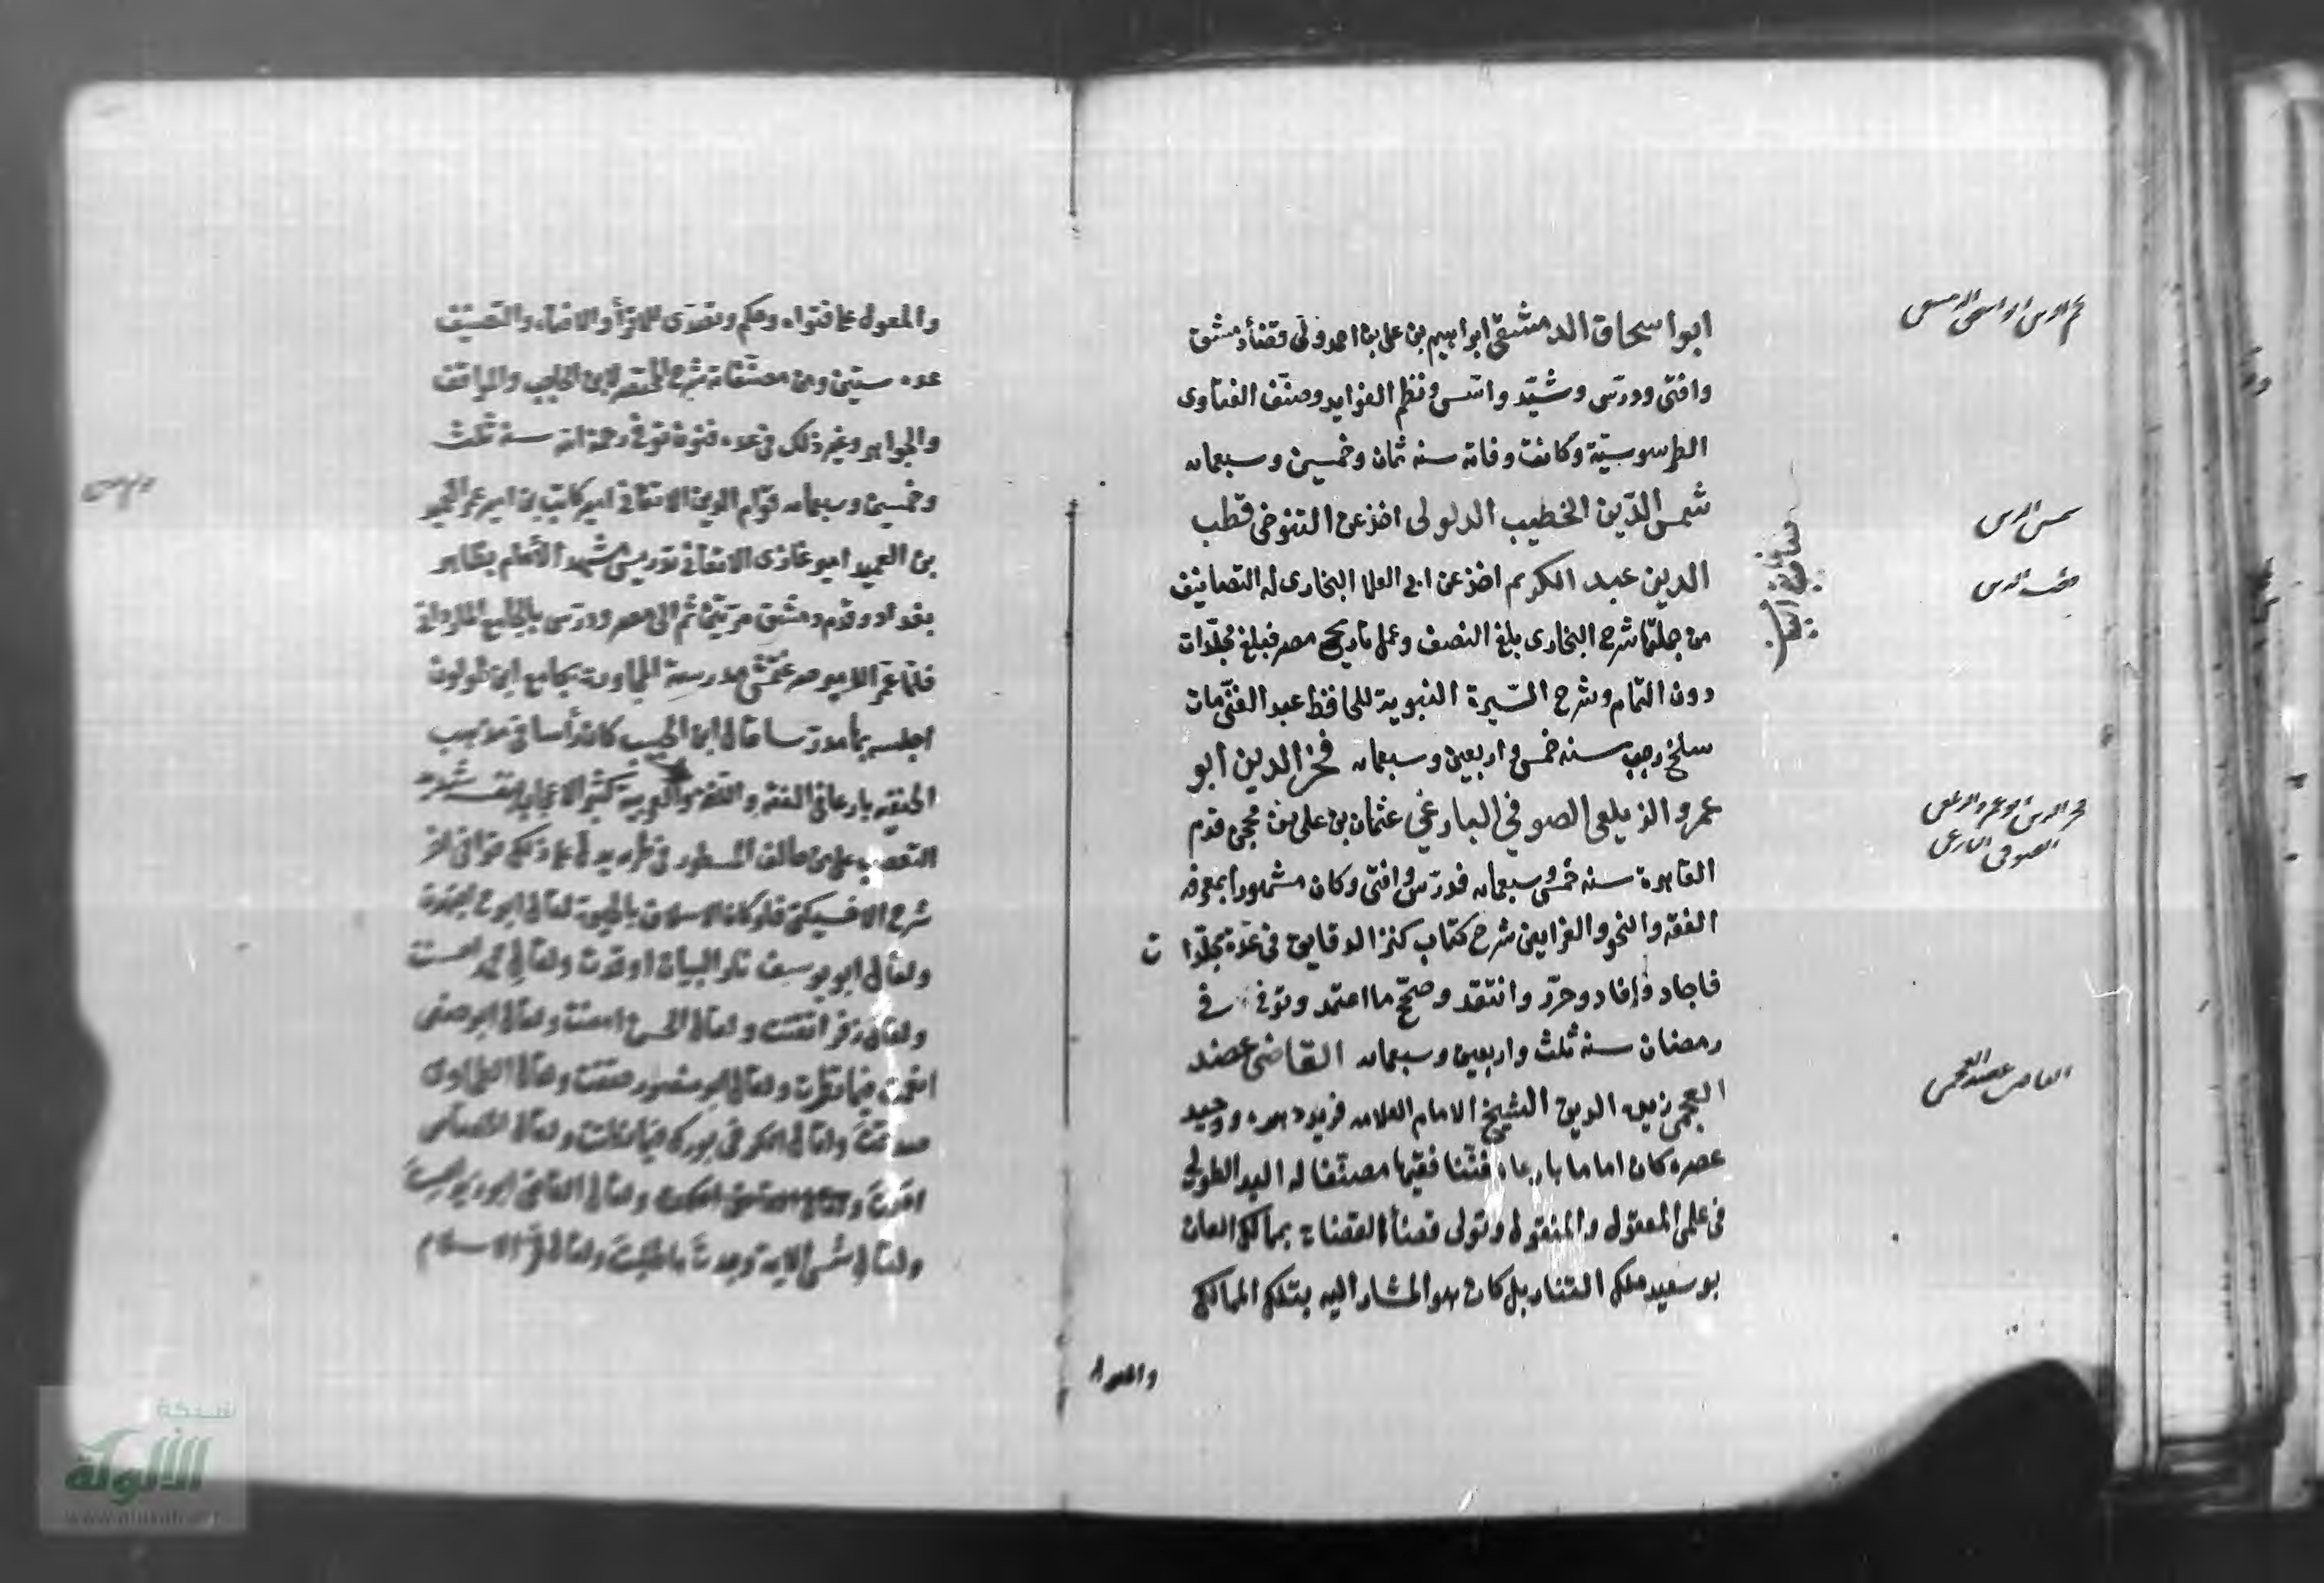 نجم الدين ابو اسحق الدمشقي
ابوا سحاق الدمشقي ابراهيم بن على بن احمد ولى قضأ دمشق
وافتى ودرّس وشيّد واسّس ونظم الفوايد وصنّف الفتاوى
الطرسوسيّة وكانت وفاته سنه ثمان وخمسين وسبعمايه
شمس الدين
شمس الدّين الخطيب الدلولى اخذ عن التنوخى قطب
قطب الدين
الدين عبد الكريم اخذ عن ابى العلا البخارى له التصانيف
من جملتها شرح البخارى بلغ النصف وعمل تاريخ مصر فبلغ مجلّدات
دون التمام وشرح السّيرة النبوية للحافظ عبد الغنى مات
سلخ رجب سنه خمس واربعين وسبعمايه فخر الدين ابو
فخر الدين ابو عمرو الزيلعى
الصوفى البارعى
عمرو الزيلعى الصوفي البارغي عثمان بن على بن محجن قدم
القاهرة سنه خمس وسبعمايه فدرّس وافتى وكان مشهورا بمعرفه
الفقه والنحو والفرايض شرح كتاب كنز الدقايق فى عدّة مجلّدا ت
فاجاد وافاد وحرّر وانتقد وصحّح ما اعتمد وتوفى فى
رمضان سنه ثلث واربعين وسبعمايه القاضى عضد
القاضى عضد العجمى
العجمى زين الدين الشيخ الامام العلامه فريد دهره ووحيد
عصره كان اماما بارعا مفنّنا فقيها مصنّفا له اليد الطولى
فى علمى المعقول والمنقول وتولى قضأ القضاة بممالك القان
بو سعيد ملك التتار بل كان هو المشار اليه بتلك الممالك
والمعول
والمعول على فتواه وحكم وتصدّى للاقرأ والافتآء والتصنيف
عده ستين ومن مصنّفاته شرح المختصر لابن الحاجب والمواقف
والجواهر وغير ذلك فى عده فنون توفى رحمه الله سنه ثلث
وخمسين وسبعمايه قوّام الدين الاتقانى امير كاتب بن امير عمر العميد
بن العميد امير غازى الاتقانى تدريس مشهد الأمام بظاهر
بغداد وقدم دمشق مرّتين ثم الى مصر ودرّس بالجامع الماردانى
فلمّا عمّر الامير صرغتمش مدرسة المجاورة بجامع ابن طولون
اجلسه بها مدرّسا قال ابن الحبيب كان رأسا فى مذهب
الحنفيّه بارعا فى الفقه واللغه والعربية كثير الاعجاب بنفسه شديد
التعصب على من خالفه
شرح الاخسيكثى فلو كان الاسلاف بالحيوة لقال ابو حنيفة اجتهدت
ولقال ابو يوسف نار البيان اوقدت ولقال محمد احسنت
ولقال زفر اتقنت ولقال الحسن امعنت ولقال ابو حفص
انعمت فيما نظرت ولقال ابو منصور حققت ولقال الطحاوى
صدقت ولقال الكرخى بورك فيما نطقت ولقال الجصاص
احكمت ولقال القاضى ابو زيد اصبت
ولقال شمس الايمه وجدت ما طلبت ولقال فخر الاسلام
شبكة
الألوكة
www.alukah.net